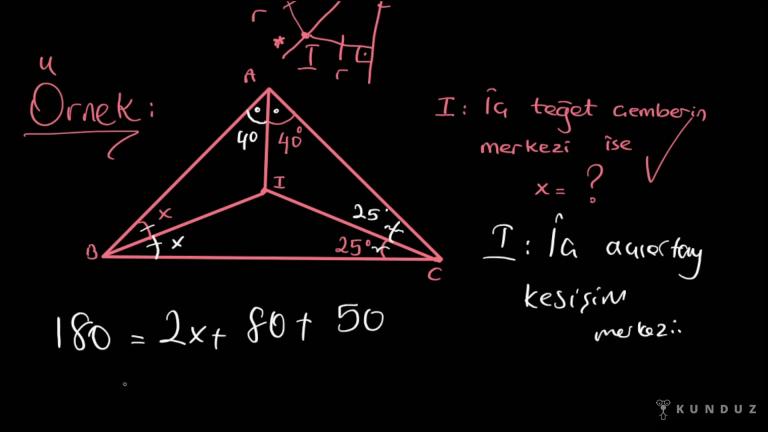 r
* I
r
Örnek:
A
40 40°
I
x
x
25°
25°
B
C
I: İç teğet çemberin
merkezi ise
x = ?
I: İç açıortay
kesişim
merkezi:
180 = 2x + 80 + 50
KUNDUZ